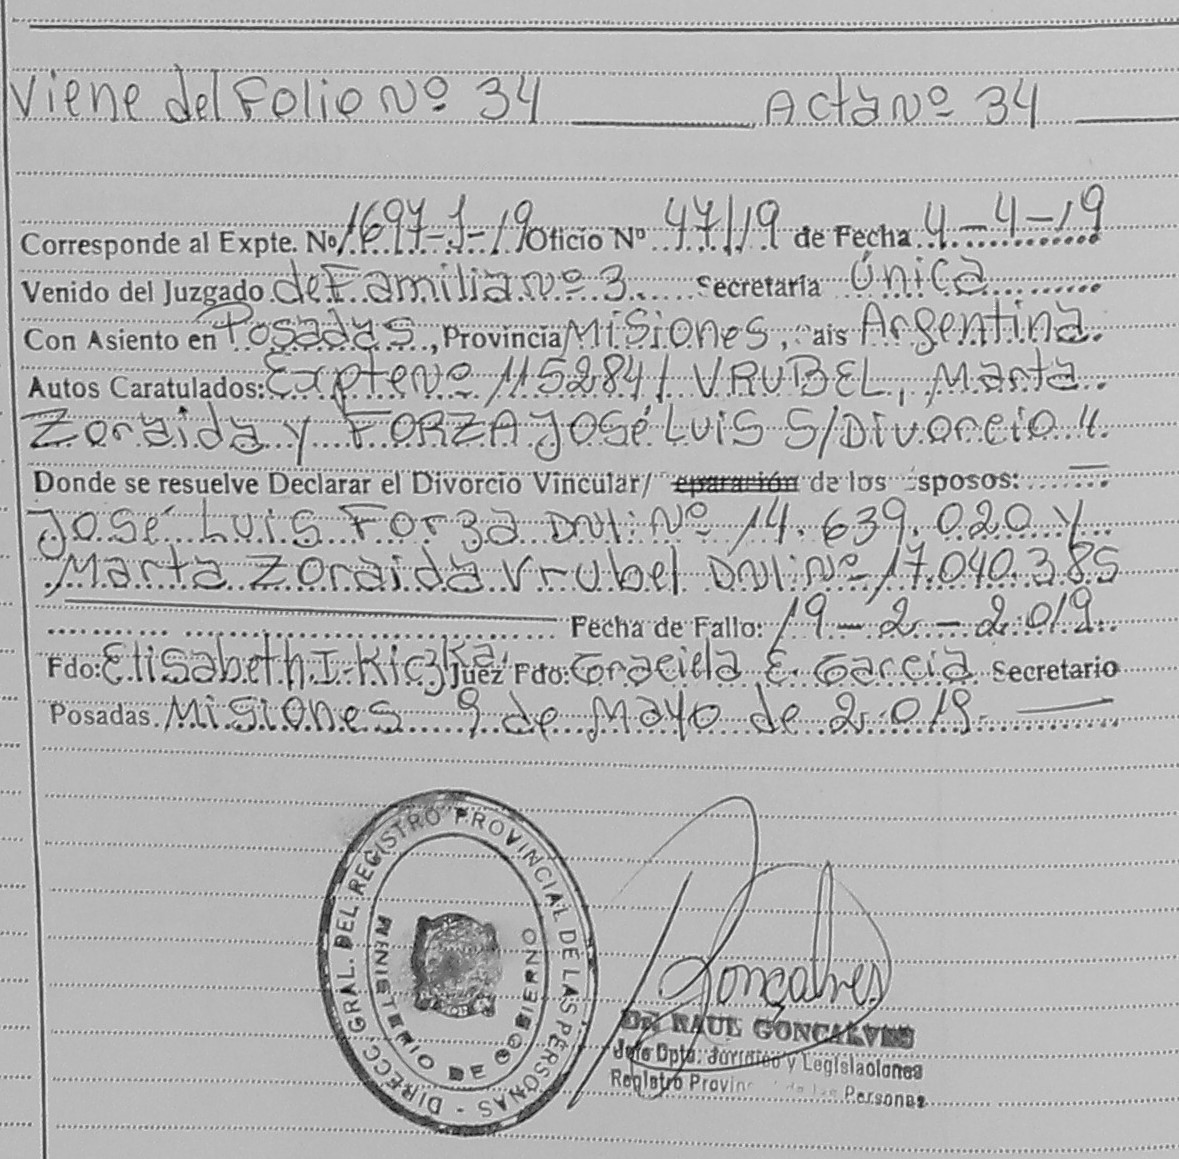 Viene del Folio Nº 34 Acta Nº 34
Corresponde al Expte. Nº 1697-J-19 Oficio Nº 47/19 de Fecha 4-4-19
Venido del Juzgado de Familia Nº 3 Secretaría Única
Con Asiento en Posadas, Provincia Misiones, ais Argentina.
Autos Caratulados: Expte Nº 115284/ VRUBEL, Marta
Zoraida y FORZA JOSÉ LUIS S/Divorcio".
Donde se resuelve Declarar el Divorcio Vincular/ eparación de los sposos:
José Luis Forza DNI: Nº 14.639.020 y
Marta Zoraida Vrubel DNI: Nº 17.040.385
Fecha de Fallo: 19-2-2.019.
Fdo: Elisabeth I. Kiczka, Juez Fdo: Graciela E. García Secretario
Posadas. Misiones 9 de Mayo de 2.019.
DIRECC. GRAL. DEL REGISTRO PROVINCIAL DE LAS PERSONAS -
MINISTERIO DE GOBIERNO
Goncalves
Dr. RAUL GONCALVES
Jefe Dpto. Jurídico y Legislaciones
Registro Provinc de las Personas